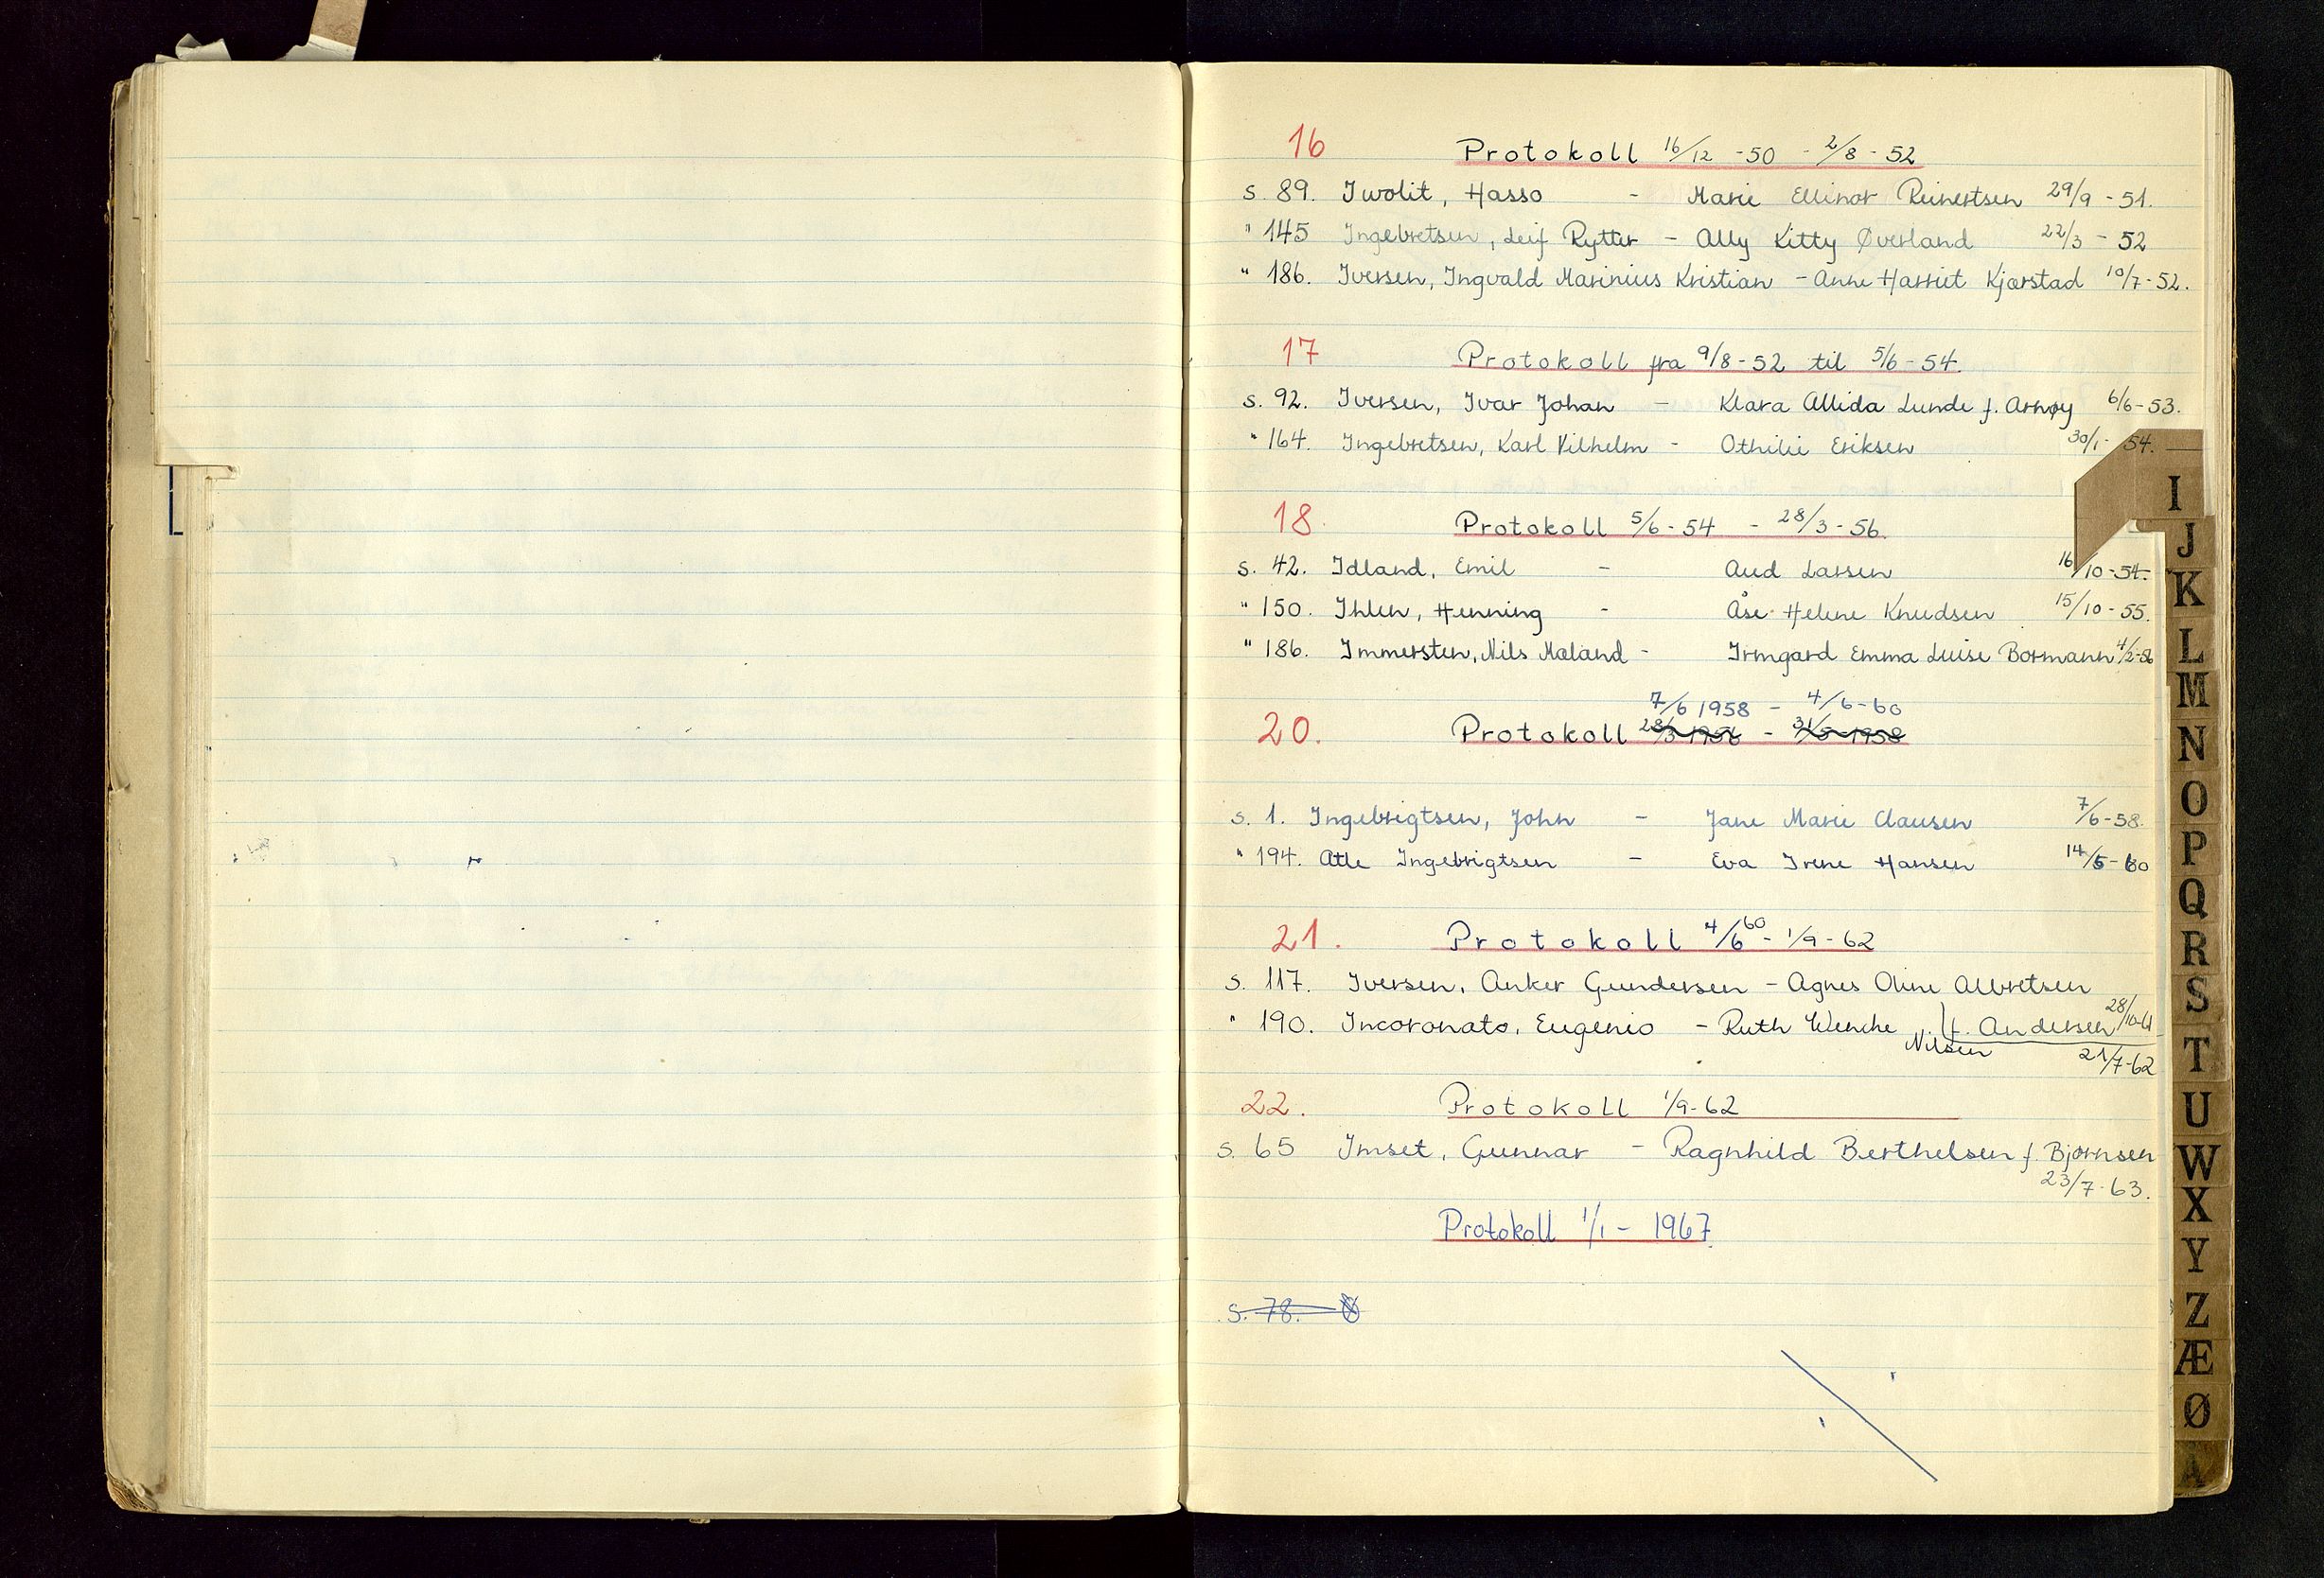 16 Protokoll 16/12 -50 - 2/8 - 52
s. 89. Iwolit, Hasso - Marie Ellinor Reinertsen 29/9 - 51.
" 145 Ingebretsen, Leif Rytter - Ally Kitty Øverland 22/3 - 52
" 186. Iversen, Ingvald Marinius Kristian - Anne Harriet Kjærstad 10/7 - 52.
17 Protokoll fra 9/8 - 52 til 5/6 - 54.
s. 92. Iversen, Ivar Johan - Klara Allida Lunde f. Arnøy 6/6 - 53.
" 164. Ingebretsen, Karl Vilhelm - Othilie Eriksen 30/1 - 54.
18. Protokoll 5/6 - 54 - 28/3 - 56.
s. 42. Idland, Emil - Aud Larsen 16/10 - 54.
" 150. Ihlen, Henning - Åse Helene Knudsen 15/10 - 55.
" 186. Immersten, Nils Mæland - Irmgard Emma Luise Bormann 4/2-56
7/6 1958 - 4/6 - 60
20. Protokoll 28/3 1956 - 31/5 1958
s. 1. Ingebrigtsen, John - Jane Marie Clausen 7/6 - 58.
" 194. Atle Ingebrigtsen - Eva Irene Hansen 14/5 - 60
21. Protokoll 4/6 60 - 1/9 - 62
s. 117. Iversen, Anker Gundersen - Agnes Oline Albretsen
28/10-61
" 190. Incoronato, Eugenio - Ruth Wenche f. Andersen
Nilsen 21/7-62
22. Protokoll 1/9 - 62
s. 65 Imset, Gunnar - Ragnhild Berthelsen f. Bjørnsen
23/7 - 63.
Protokoll 1/1 - 1967
s. 78.
I
J
K
L
M
N
O
P
Q
R
S
T
U
W
X
Y
Z
Æ
Ø